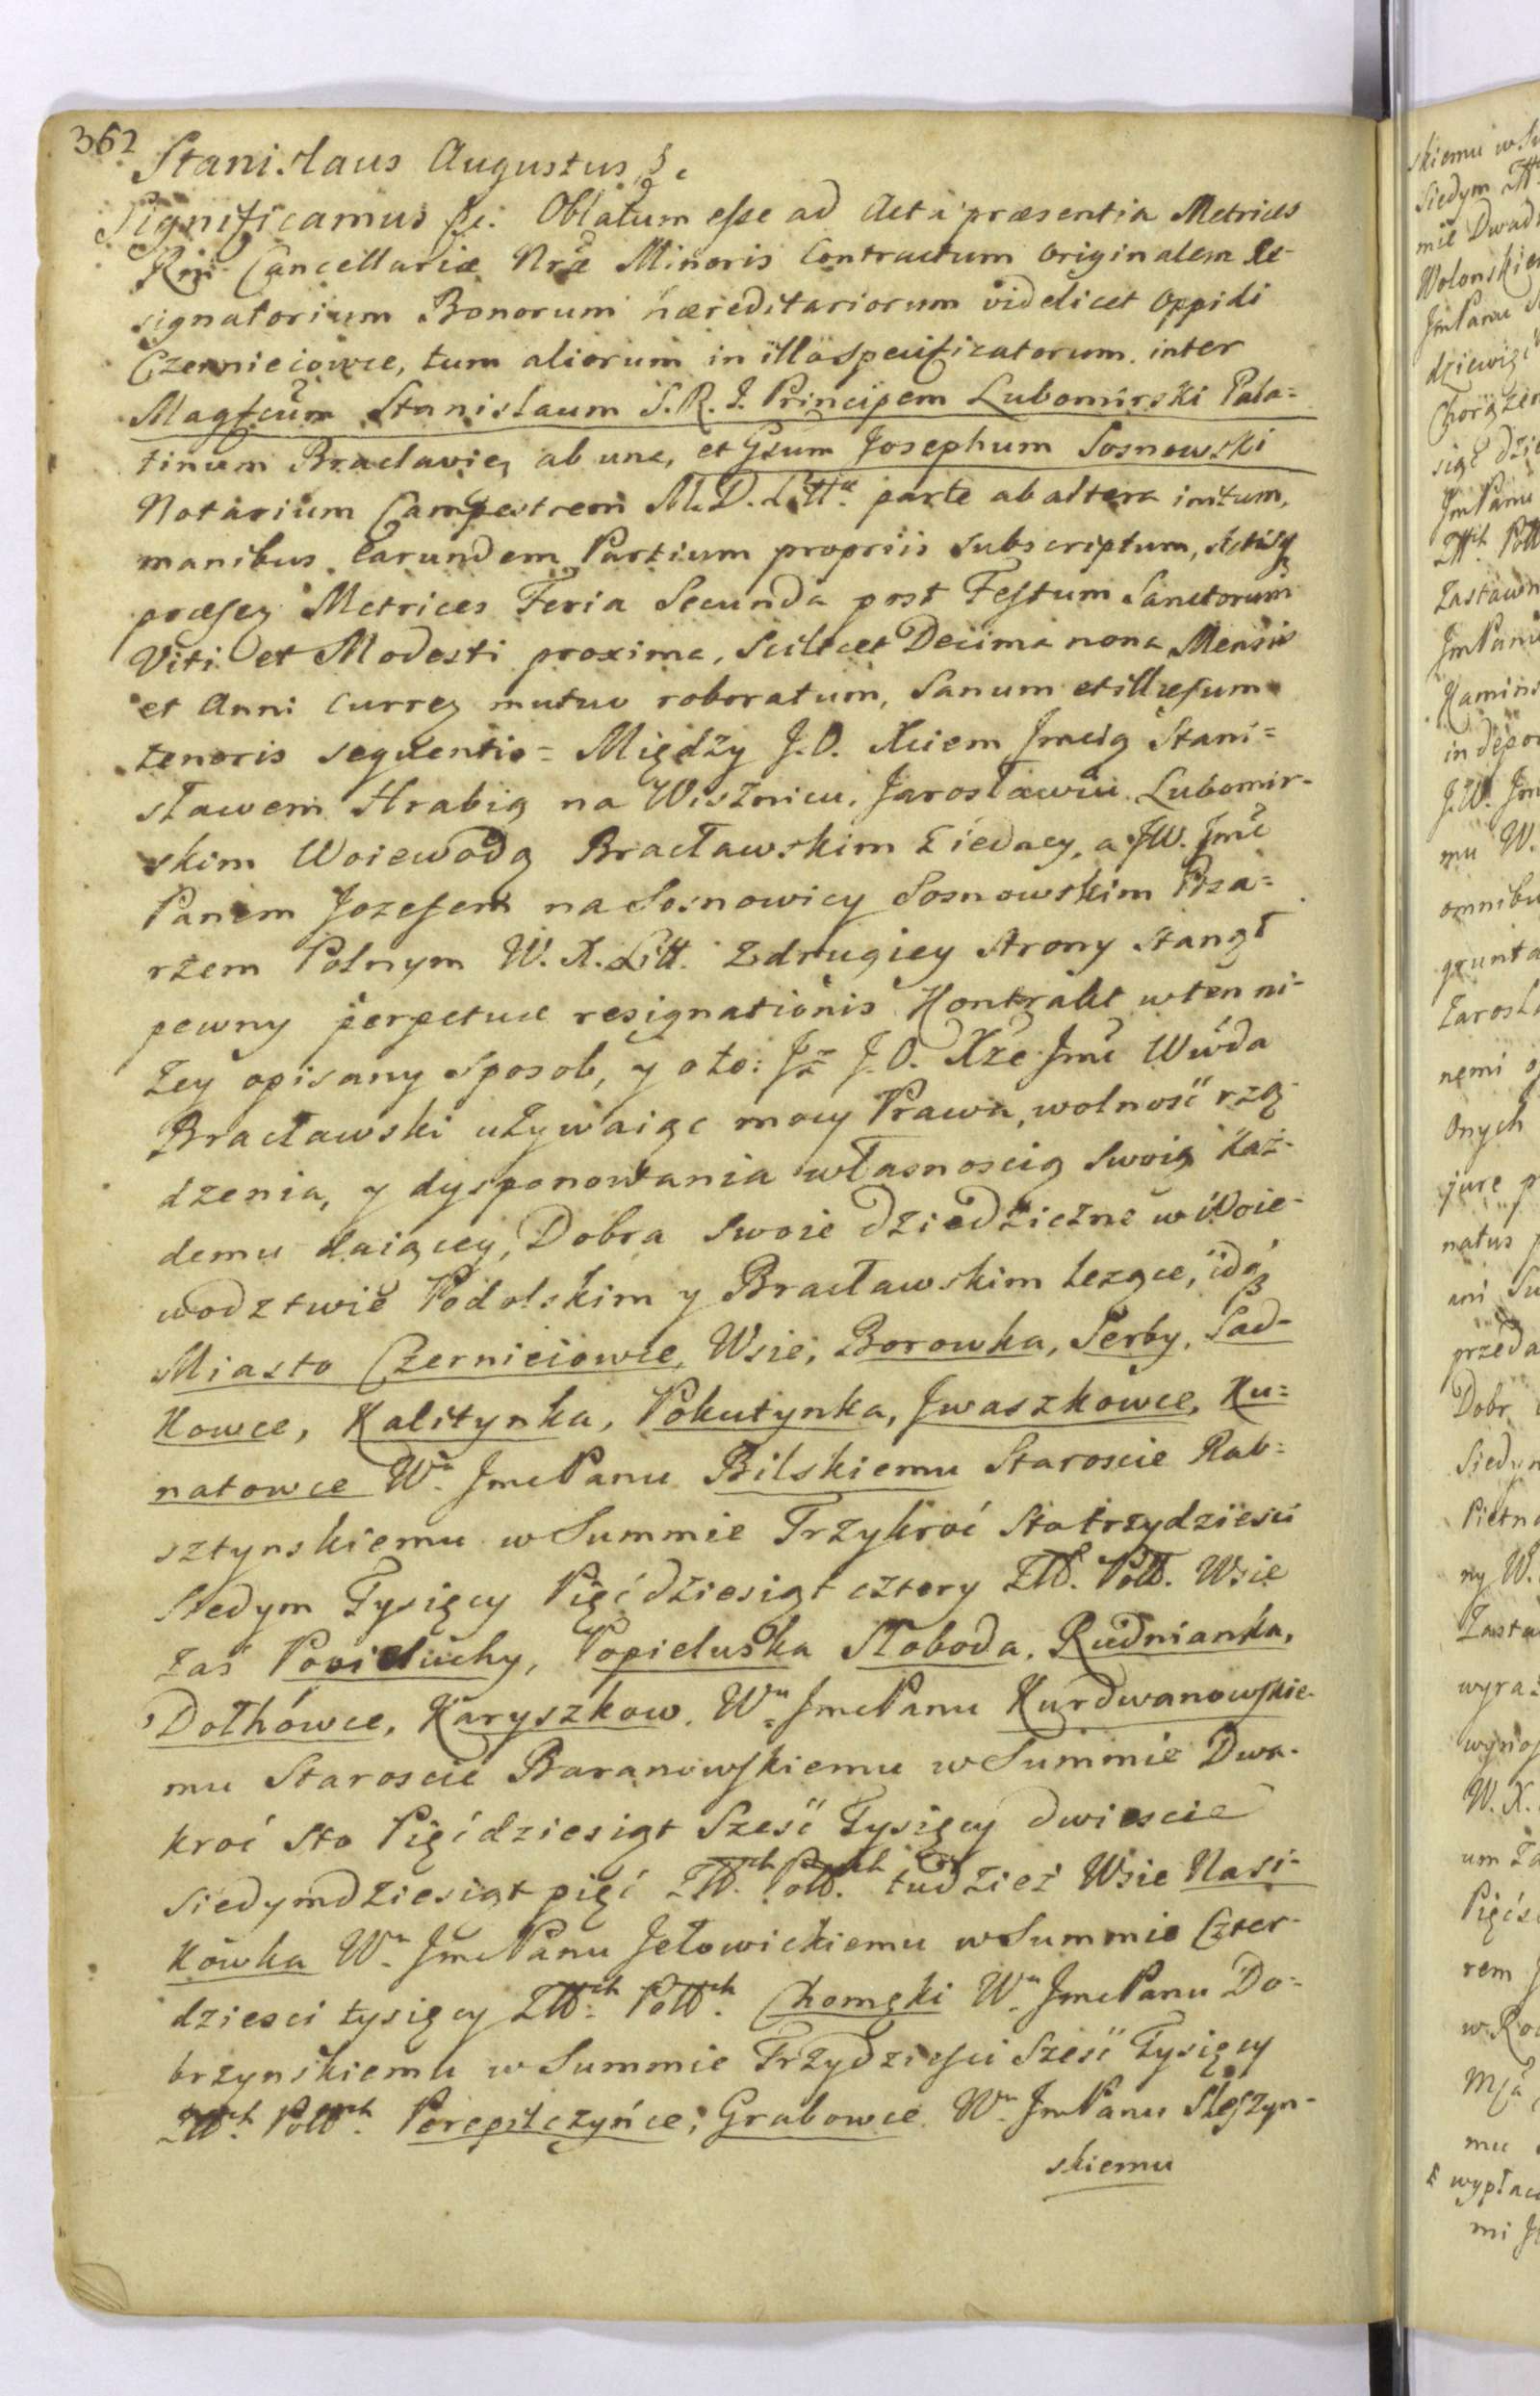 362
Stanislaus Augustus &c
Significamus &c. Oblatum esse ad Acta præsentia Metrices
Rni Cancellariæ Nræ Minoris Contractum Originalem Re-
signatorium Bonorum hæreditariorum videlicet Oppidi
Czernieiowce, tum aliorum in illo specificatorum inter
Magfcum Stanislaum S.R.I. Principem Lubomirski Pala=
tinum Braclavien ab una, et Gsum Josephum Sosnowski
Notarium Campestrem M.D. Litt. parte ab altera initum,
manibus earundem Partium propriis subscriptum, Actisq
præsen Metrices Feria Secunda post Festum Sanctorum
Viti et Modesti proxima, Scilicet Decima nona Mensis
et Anni Curren mutuo roboratum, Sanum et illæsum
tenoris sequentis = Między J.O. Xciem Jmcią Stani=
sławem Hrabią na Wiszniczu, Jarosławiu Lubomir-
skim Woiewodą Bracławskim z iedney, a JW. Jmć
Panem Jozefem na Sosnowicy Sosnowskim Pisa=
rzem Polnym W.X. Litt. z drugiey strony stanął
pewny perpetuæ resignationis Kontrakt w ten ni-
żey opisany sposob, y o to: Jż J.O. Xże Jmć Wwda
Bracławski używaiąc mocy Prawa, wolność rzą-
dzenia, y dysponowania własnością swoią każ-
demu daiącey, Dobra swoie dziedziczne w Woie-
wodztwie Podolskim y Bracławskim leżące, id est
Miasto Czernieiowce, Wsie, Borowka, Serby, Sad-
kowce, Kalitynka, Pokutynka, Jwaszkowce, Ku=
natowce W. Jmc Panu Bilskiemu Staroscie Rab=
sztynskiemu w Summie Trzykroć Sto trzydziesci
Siedym Tysięcy Pięćdziesiąt cztery Złł. Poll. Wsie
zaś Popieluchy, Popieluska Słoboda, Rudnianka,
Dołhówce, Karyszkow, W. Jmc Panu Kurdwanowskie-
mu Staroscie Baranowskiemu w Summie Dwa-
kroć Sto Pięćdziesiąt Sześć Tysięcy dwiescie
siedymdziesiąt pięć Złł.ch Poll.ch tudzież Wsie Nasi-
kowka W. Jmc Panu Jełowickiemu w Summie Czter-
dziesci tysięcy Złł.ch Poll.ch Chomęki W. Jmc Panu Do=
brzynskiemu w Summie Trzydziesci Sześć Tysięcy
Złł.ch Poll.ch Perepilczyńce, Grabowce W. Jm Panu Sleszyn-
skiemu